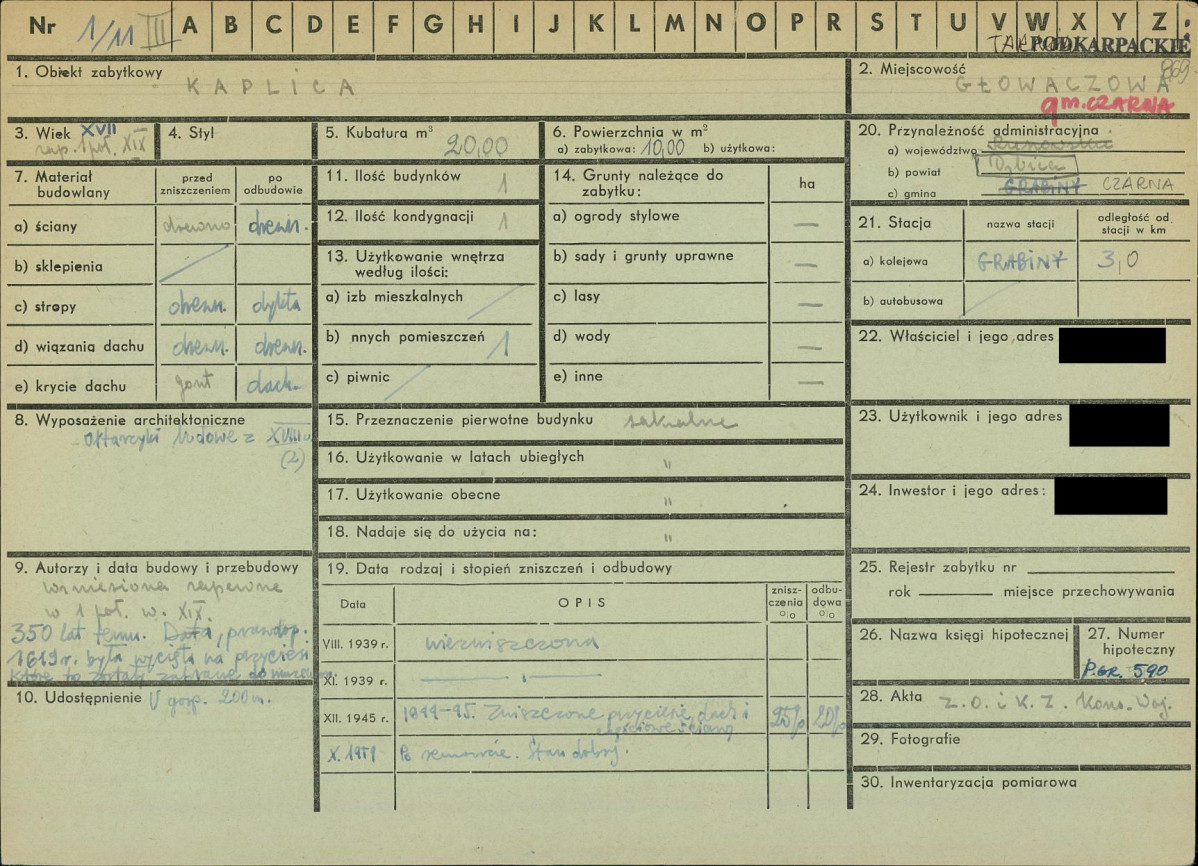 Nr 1/11 III A B C D E F G H I J K L M N O P R S T U V W X Y Z
PODKARPACKIE
1. Obiekt zabytkowy
KAPLICA
2. Miejscowość
869
GŁOWACZOWA
gm. CZARNA
3. Wiek XVII
zap. 1 poł. XIX
4. Styl
5. Kubatura m³ 20,00
6. Powierzchnia w m²
a) zabytkowa: 10,00 b) użytkowa:
20. Przynależność administracyjna
a) województwo: Rzeszowskie
b) powiat Dębica
c) gmina GRABINY CZARNA
7. Materiał budowlany
przed zniszczeniem
po odbudowie
a) ściany drewno drewn.
b) sklepienia
c) stropy drewn. dykta
d) wiązania dachu drewn. drewn.
e) krycie dachu gont dach.
11. Ilość budynków 1
12. Ilość kondygnacji 1
13. Użytkowanie wnętrza
według ilości:
a) izb mieszkalnych
b) nnych pomieszczeń 1
c) piwnic
14. Grunty należące do
zabytku: ha
a) ogrody stylowe —
b) sady i grunty uprawne —
c) lasy —
d) wody —
e) inne —
21. Stacja
nazwa stacji
odległość od stacji w km
a) kolejowa GRABINY 3,0
b) autobusowa
22. Właściciel i jego adres
23. Użytkownik i jego adres
24. Inwestor i jego adres:
8. Wyposażenie architektoniczne
- Ołtarzyki ludowe z XVIII w
(2)
15. Przeznaczenie pierwotne budynku sakralne
16. Użytkowanie w latach ubiegłych "
17. Użytkowanie obecne "
18. Nadaje się do użycia na: "
9. Autorzy i data budowy i przebudowy
wzniesiona zapewne
w 1 poł. w. XIX.
350 lat temu. Data, prawdop.
1619 r. była wycięta na przyciesi
które to zostały zabrane do muzeum
10. Udostępnienie V gosp. 200 m.
19. Data rodzaj i stopień zniszczeń i odbudowy
Data
OPIS
znisz-
czenia
%
odbu-
dowa
%
VIII. 1939 r. niezniszczona
XI. 1939 r. — " —
XII. 1945 r. 1944-45. Zniszczone przyciesie, dach i 25% 20%
częściowo ściany
X. 1959 Po remoncie. Stan dobry.
25. Rejestr zabytku nr
rok miejsce przechowywania
26. Nazwa księgi hipotecznej
27. Numer
hipoteczny
P.GR. 590
28. Akta Z. O. i K. Z. Kons. Woj.
29. Fotografie
30. Inwentaryzacja pomiarowa